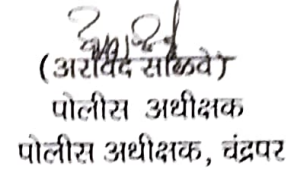 (अरविंद साळवे)
पोलीस अधीक्षक
पोलीस अधीक्षक, चंद्रपर